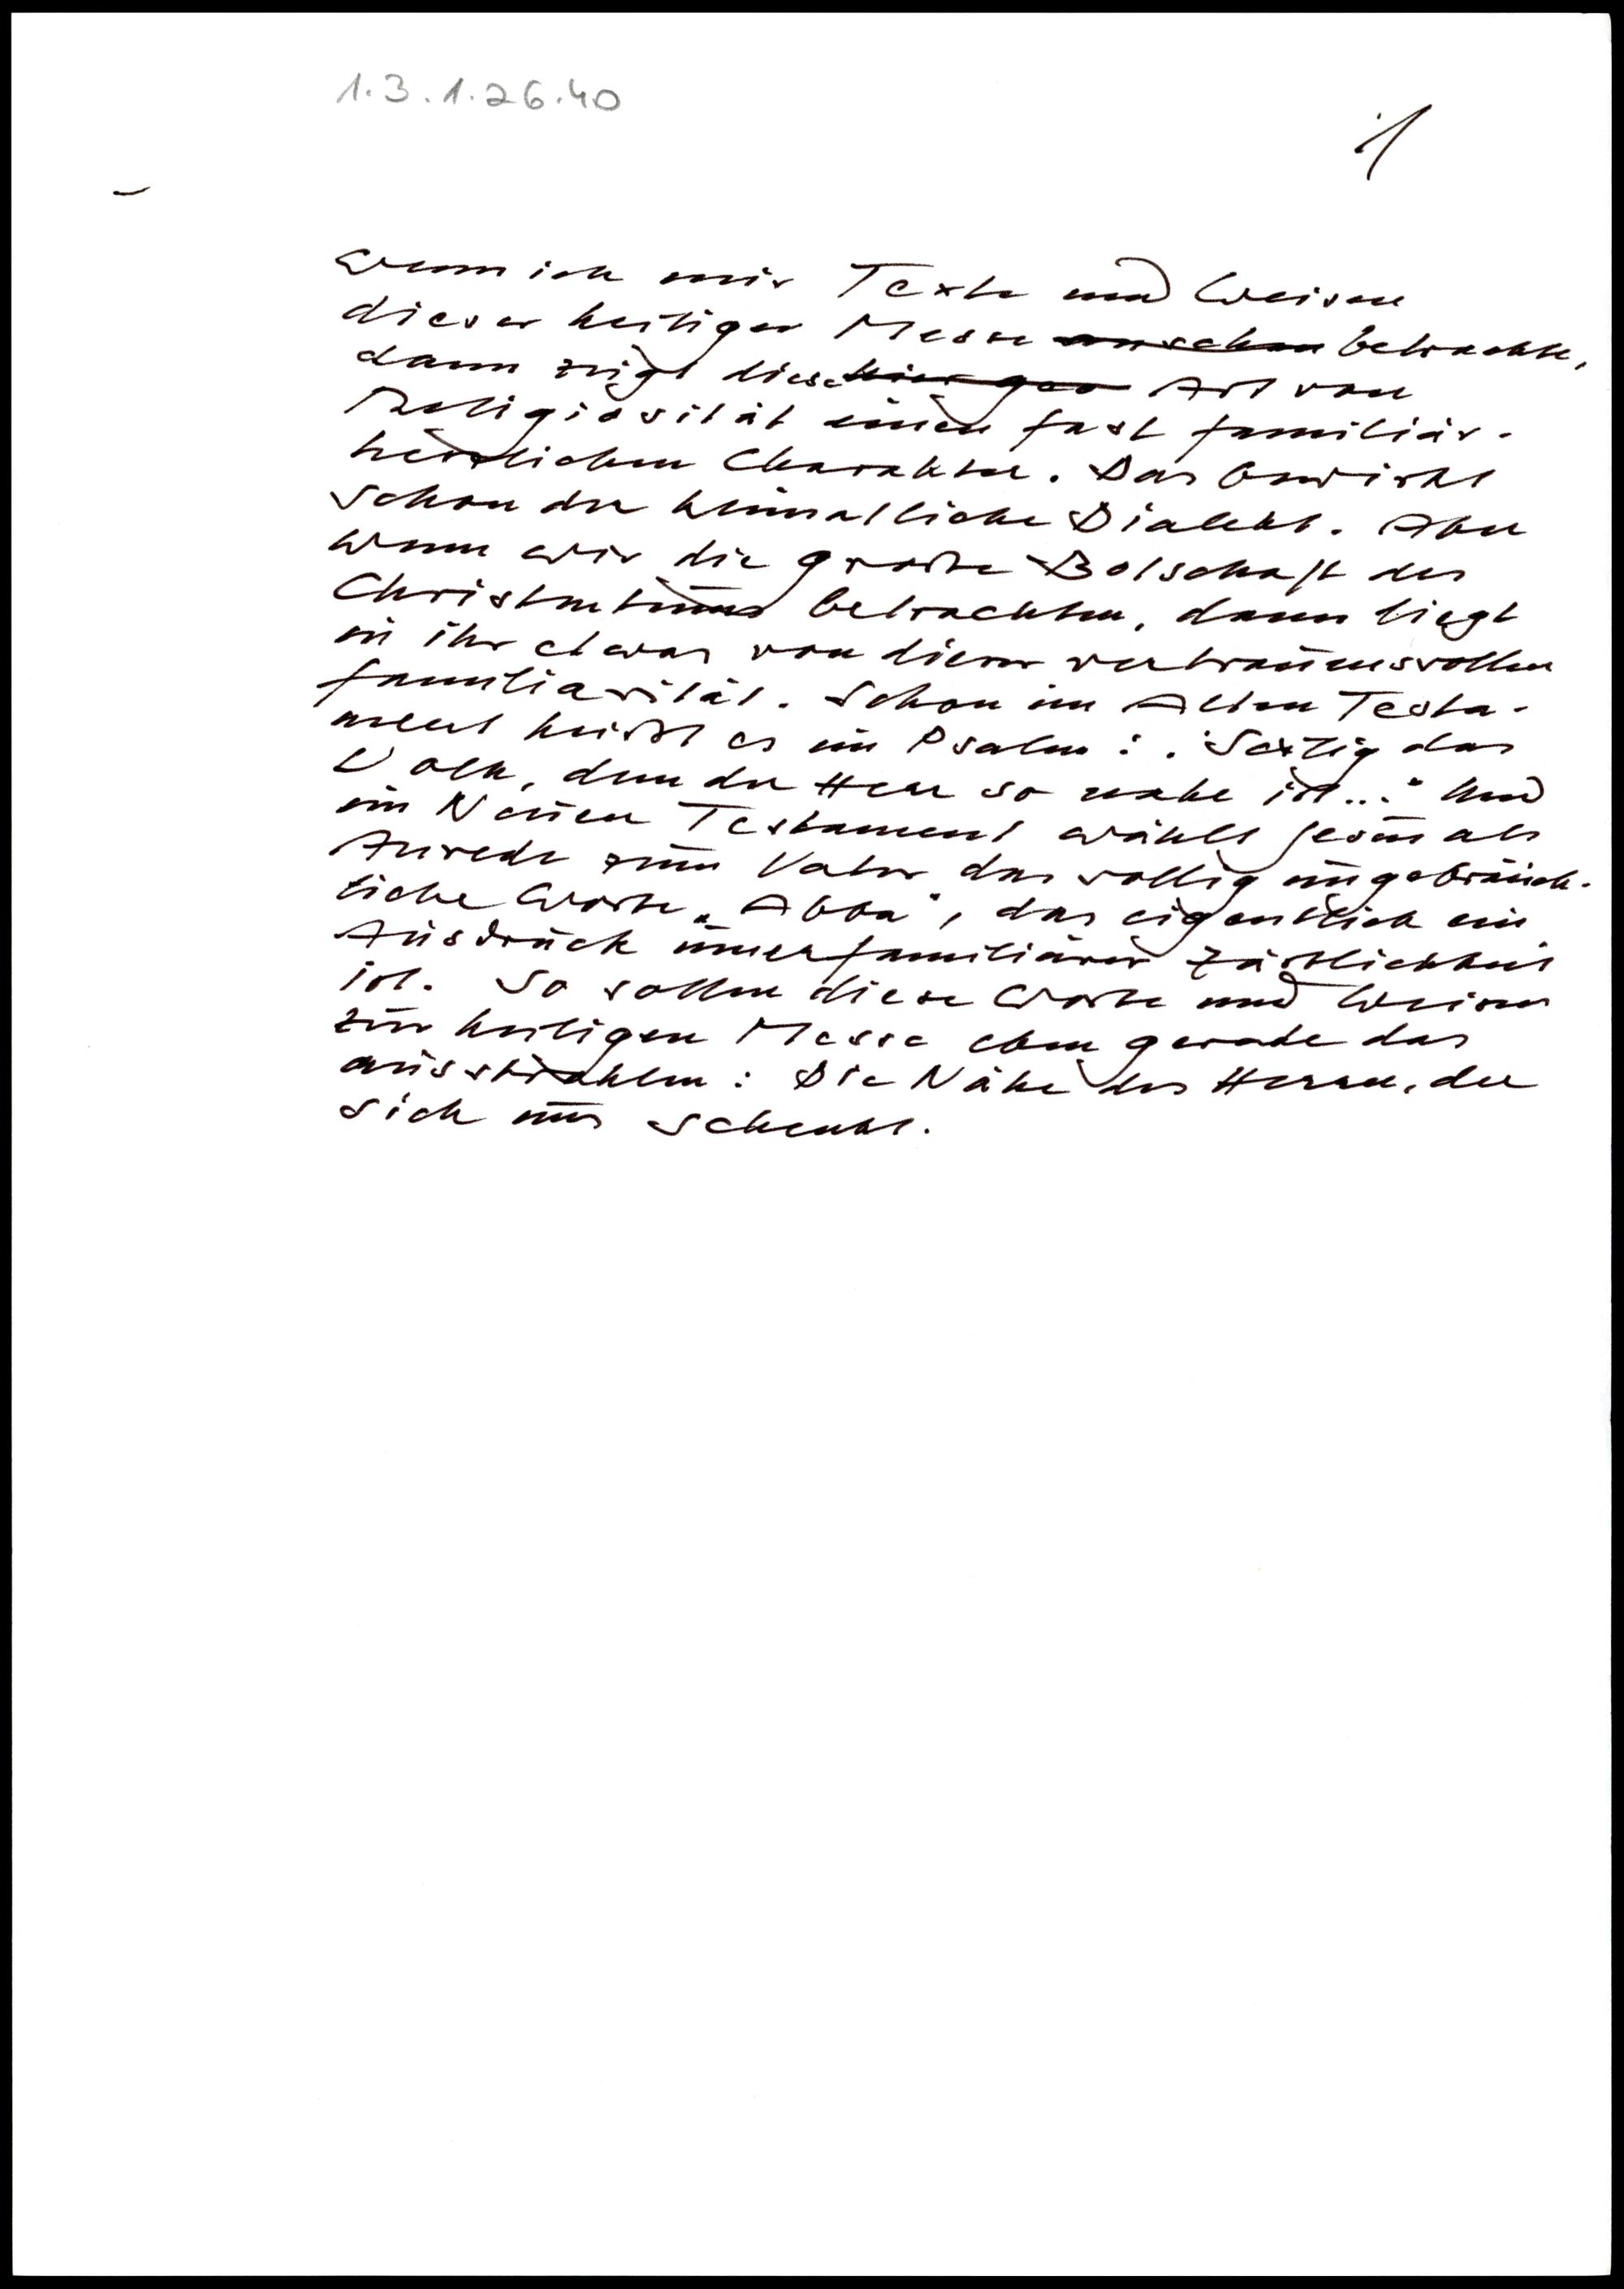 1.3.1.26.40
1
Wenn ich mir Texte und Weisen
dieser heiligen Messe ansehen betrachte,
dann zeigt diese Art von
Religiosität einen fast familiär-
herzlichen Charakter. Das bewirkt
schon der heimatliche Dialekt. Aber
wenn wir die große Botschaft des
Christentums betrachten, dann liegt
in ihr etwas von dieser vertrauensvollen
Familiarität. Schon im Alten Testa-
ment heißt es im Psalm: "Selig das
Volk, dem der Herr so nahe ist..." Und
im Neuen Testament wählt Jesus als
Anrede zum Vater das völlig ungebräuch-
liche Worte „Abba", das eigentlich ein
Ausdruck innerfamiliärer Zärtlichkeit
ist. So sollen diese Worte und Weisen
zur heiligen Messe eben gerade das
ausstrahlen: Die Nähe des Herrn, der
sich uns schenkt.